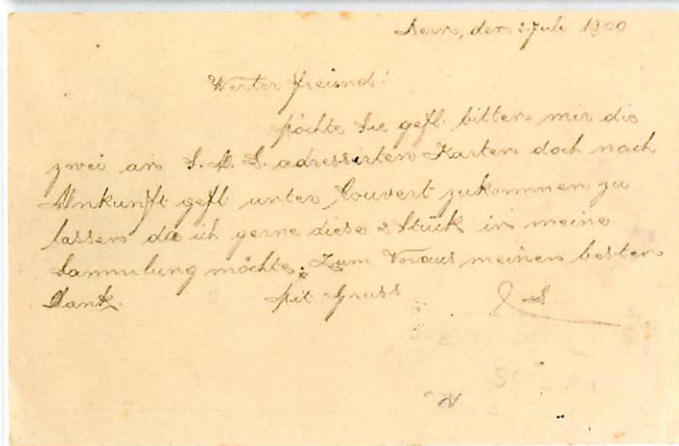 Bern, den 2. Juli 1900
Werter Freund!
Möchte Sie gefl. bitten mir die
zwei an S. M. S. adressirten Karten doch nach
Ankunft gefl. unter Couvert zukommen zu
lassen da ich gerne diese 2 Stück in meine
Sammlung möchte. Zum Voraus meinen besten
Dank. Mit Gruss S.